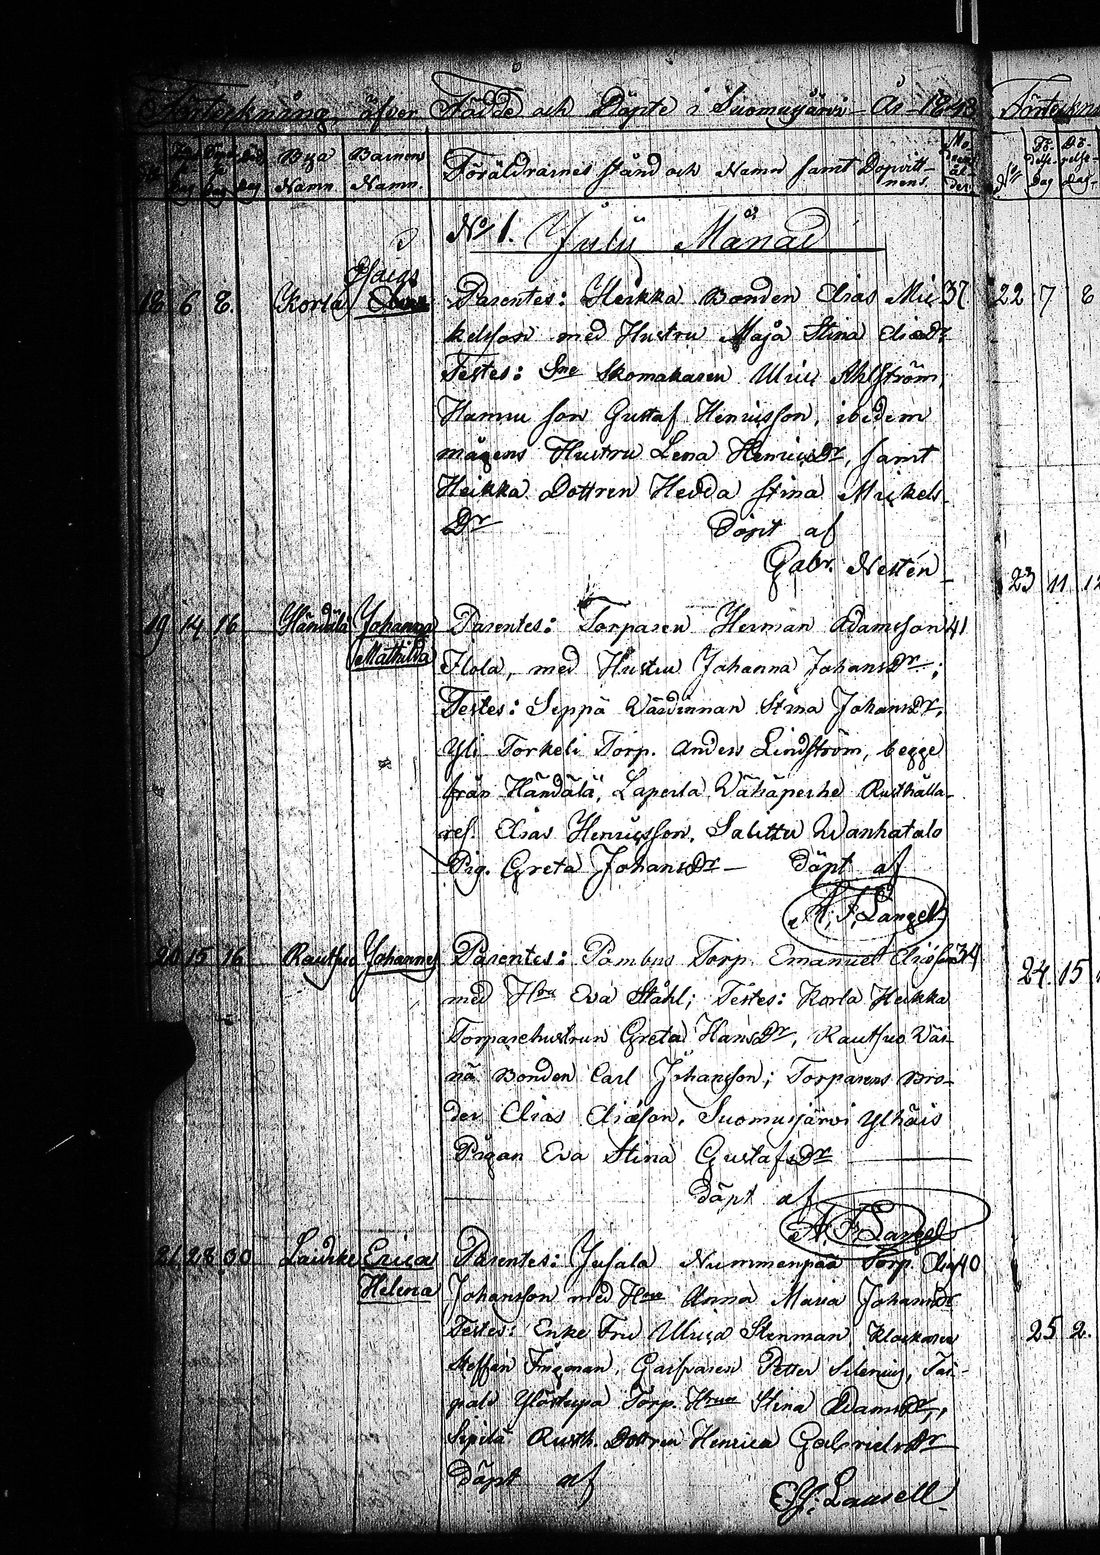 Förteckning öfver Födde och Döpte i Suomusjärvi År 1843
Bya Namn. Barnens Namn. Föräldrarnes stånd och Namn samt Dopvittnens
No 1. Julii Månad
18. 6 8. Korla Parentes: Heikka Bonden Elias Mic- 37
kelsson med Hustru Maja Stina Eliædr
Testes: Sne Skomakaren Ulric Ahlström,
Hannu son Gustaf Henricsson, ibidem
mågens Hustru Lena Henricsdr, samt
Heikka Dottren Hedda Stina Mickels-
Dr Döpt af
Gabr. Nestén
19 14 16 Händälä Johanna Parentes: Torparen Herman Adamsson 41
Mathilda
Hola, med Hustru Johanna Johansdr;
Testes: Seppä Värdinnan Stina Johansdr,
Yli Torkeli Torp. Anders Lindström, begge
från Händälä, Laperla Vähäperhe Rusthålla-
res. Elias Henricsson, Salittu Wanhatalo
Pig. Greta Johansdr Döpt af
A. F. Langell
20 15 16 Rautsuo Johannes Parentes: Pambus Torp. Emanuel 34
med Hru Eva Ståhl; Testes: Korla Heikka
Torparehustrun Greta Hansdr, Rautsuo Vär-
nä Bonden Carl Johansson; Torparens Bro-
der Elias Eliæson, Suomusjärvi Ylhäis
Pågan Eva Stina Gustafsdr
Döpt af
A. F. Langell
21. 28 30 Laidike Erica Parentes: Jusala Nummenpää Torp. 40
Helena
Johansson med Hru Anna Maria Johansdr
Testes: Enke Fru Ulrica Stenman Klockaren
Steffan Ingman, Garfvaren Petter Silenius, Tai-
pale Ylöstupa Torp. Hru Stina Adamsdr,
Sipilä Rusth. Dottren Henrica Gabrielsdr
Döpt af
Langell
22 7 8
23 11 12
24. 15
25 2.